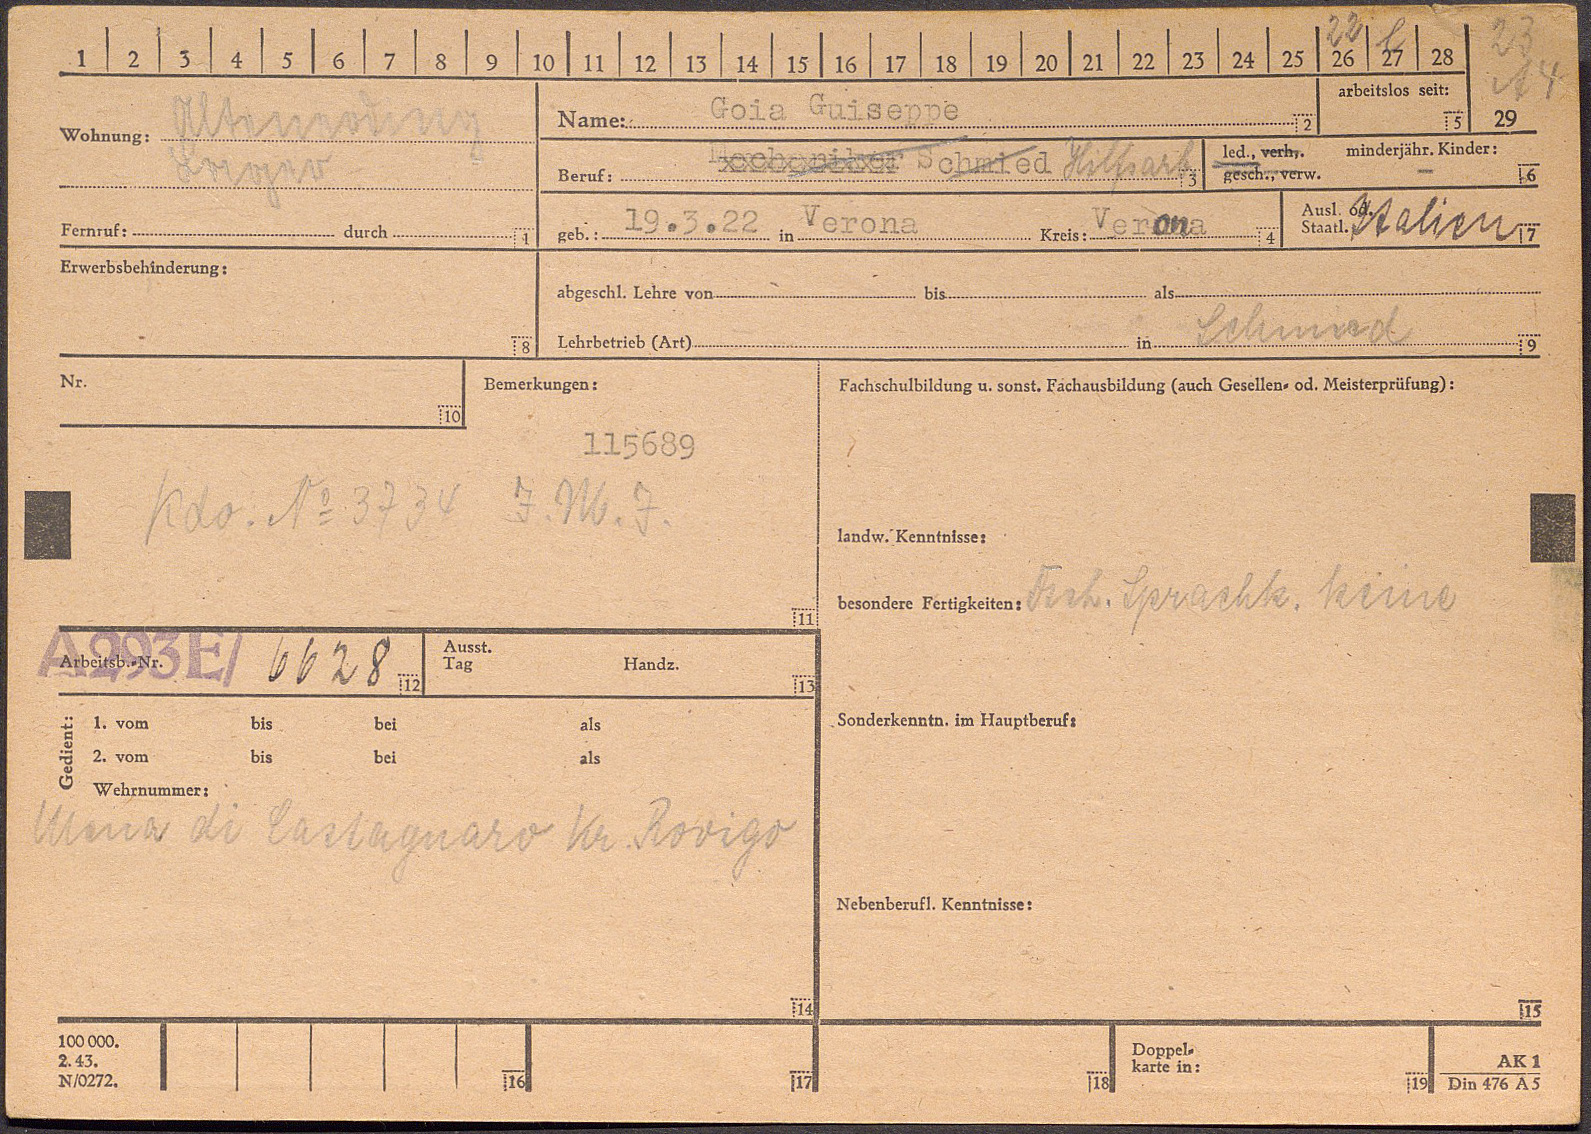 1 2 3 4 5 6 7 8 9 10 11 12 13 14 15 16 17 18 19 20 21 22 23 24 25 26 27 28
22
23
A4
29
arbeitslos seit: 5
Wohnung:
Lager
Fernruf: durch 1
Name: Goia Guiseppe 2
Beruf: Schmied Hilfsarb 3
led., verh., gesch., verw.
minderjähr. Kinder: – 6
geb.: 19.3.22 in Verona Kreis: Verona 4
Ausl. od. Staatl. Italien 7
Erwerbsbehinderung: 8
abgeschl. Lehre von bis als
Lehrbetrieb (Art) in Schmied 9
Nr. 10
Bemerkungen:
115689
Kdo. № 3734 J.M.J.
11
Fachschulbildung u. sonst. Fachausbildung (auch Gesellen- od. Meisterprüfung):
landw. Kenntnisse:
besondere Fertigkeiten: Sprachk. keine
Sonderkenntn. im Hauptberuf:
Nebenberufl. Kenntnisse:
15
A293E/
Arbeitsb.-Nr. 6628 12
Ausst. Tag Handz. 13
Gedient:
1. vom bis bei als
2. vom bis bei als
Wehrnummer:
di Castagnaro Kr. Rovigo
14
100 000.
2. 43.
N/0272.
16 17 18
Doppel-
karte in: 19
AK 1
Din 476 A 5